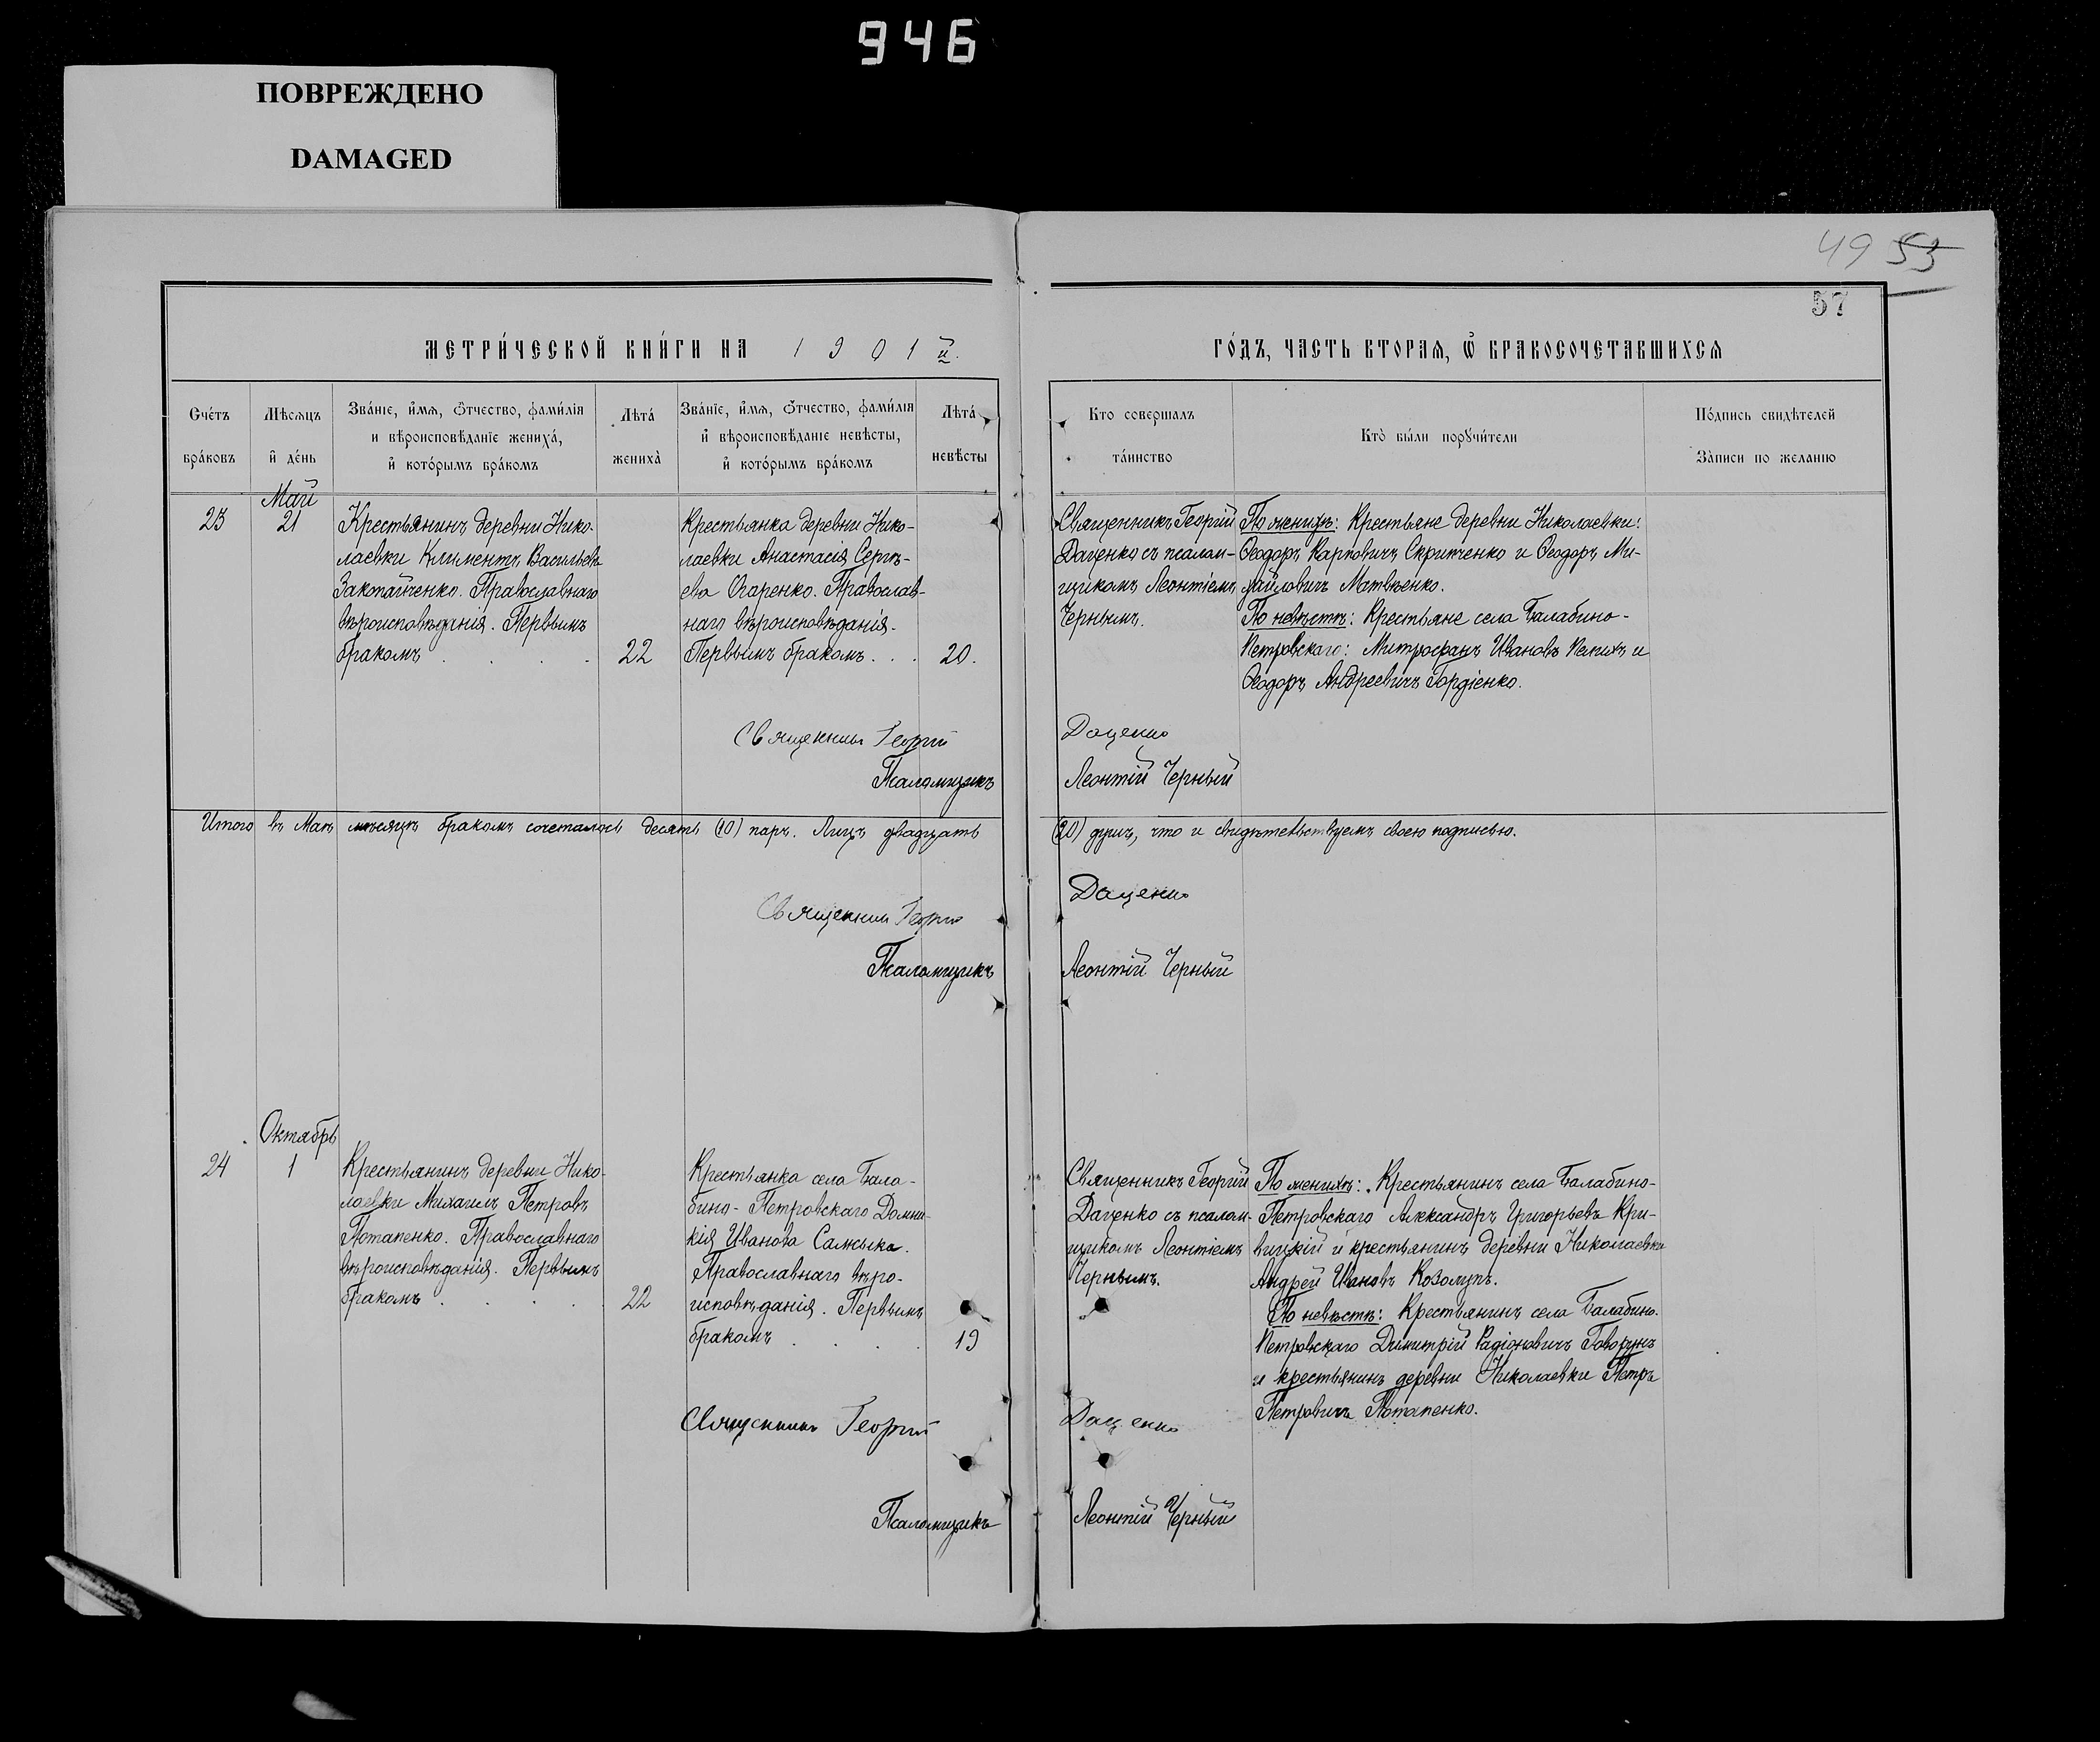 946
ПОВРЕЖДЕНО
DAMAGED
49 53
57
МЕТРИ́ЧЕСКОЙ КНИ́ГИ НА 1901 й.
ГО́ДЪ, ЧАСТЬ ВТОРАѦ, Ѿ БРАКОСОЧЕТАВШИХСѦ
Счéтъ бра́ковъ
Мѣсѧцъ и де́нь
Зва́нїе, и҆́мѧ, ѻ҆́тчество, фами́лїѧ
и вѣроисповѣ́данїе жениха́,
и҆ кото́рымъ бра́комъ
Лѣта́ жениха̀
Зва́нїе, и҆́мѧ, ѻ҆́тчество, фами́лїѧ
и҆ вѣроисповѣ́данїе невѣ́сты,
и҆ кото́рымъ бра́комъ
Лѣта́ невѣ́сты
Кто совершалъ та́инство
Кто̀ бы́ли порꙋчи́тели
По́дпись свидѣ́телей
За́писи по желанію
Май
23
21
Крестьянинъ деревни Нико-
лаевки Климентъ Васильевъ
Закопайченко. Православнаго
вѣроисповѣданія. Первымъ
бракомъ . . . .
22
Крестьянка деревни Нико-
лаевки Анастасія Сергѣ-
ева Огаренко. Православ-
наго вѣроисповѣданія.
Первымъ бракомъ . . .
20.
Священникъ Георгій
Даценко съ псалом-
щикомъ Леонтіемъ
Чернымъ.
По женихѣ: Крестьяне деревни Николаевки:
Ѳеодоръ Карповичъ Скрипченко и Ѳеодоръ Ми-
хайловичъ Матвѣенко.
По невѣстѣ: Крестьяне села Балабино-
Петровскаго: Митрофанъ Ивановъ и
Ѳеодоръ Андреевичъ Гордіенко.
Священникъ Георгій Даценко
Псаломщикъ Леонтій Черный
Итого въ Маѣ мѣсяцѣ бракомъ сочеталось десять (10) паръ. Лицъ двадцать (20) душъ, что и свидѣтельствуемъ своею подписью.
Священникъ Георгій Даценко
Псаломщикъ Леонтій Черный
Октябрь
24
1
Крестьянинъ деревни Нико-
лаевки Михаилъ Петровъ
Потапенко. Православнаго
вѣроисповѣданія. Первымъ
бракомъ . . . .
22
Крестьянка села Бала-
бино-Петровскаго Домни-
кія Иванова Салжыка.
Православнаго вѣро-
исповѣданія. Первымъ
бракомъ . . . .
19
Священникъ Георгій
Даценко съ псалом-
щикомъ Леонтіемъ
Чернымъ.
По женихѣ: Крестьянинъ села Балабино-
Петровскаго Александръ Григорьевъ Кри-
вицкій и крестьянинъ деревни Николаевки
Андрей Ивановъ Козолупъ.
По невѣстѣ: Крестьянинъ села Балабино-
Петровскаго Димитрій Радіоновичъ Говорунъ
и крестьянинъ деревни Николаевки Петръ
Петровичъ Потапенко.
Священникъ Георгій Даценко
Псаломщикъ Леонтій Черный